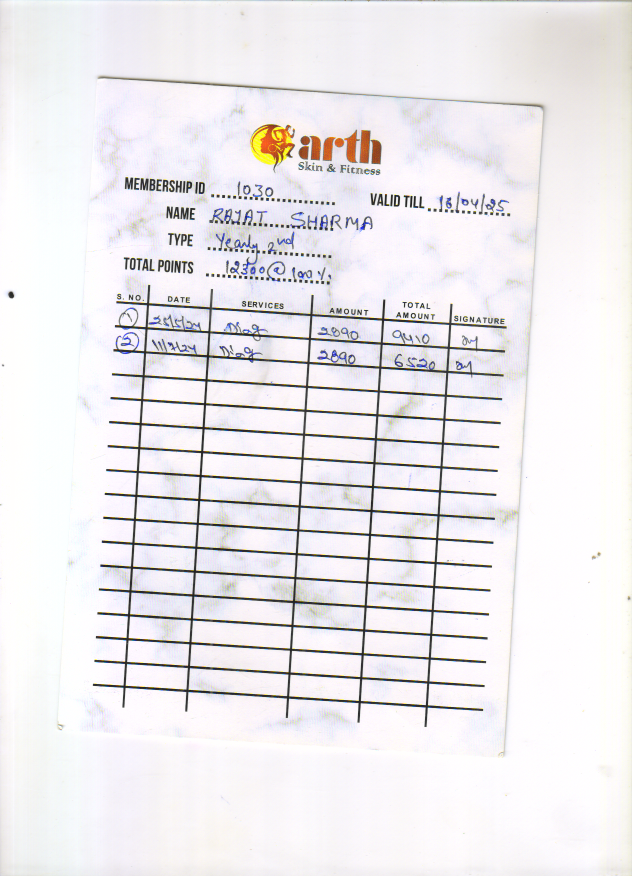 arth
Skin & Fitness
MEMBERSHIP ID 1030
VALID TILL 18/04/25
NAME RAJAT SHARMA
TYPE Yearly 2nd
TOTAL POINTS 12300 @ 100%
S. NO. DATE SERVICES AMOUNT TOTAL AMOUNT SIGNATURE
1 25/5/24 2890 9410
2 11/7/24 2890 6520